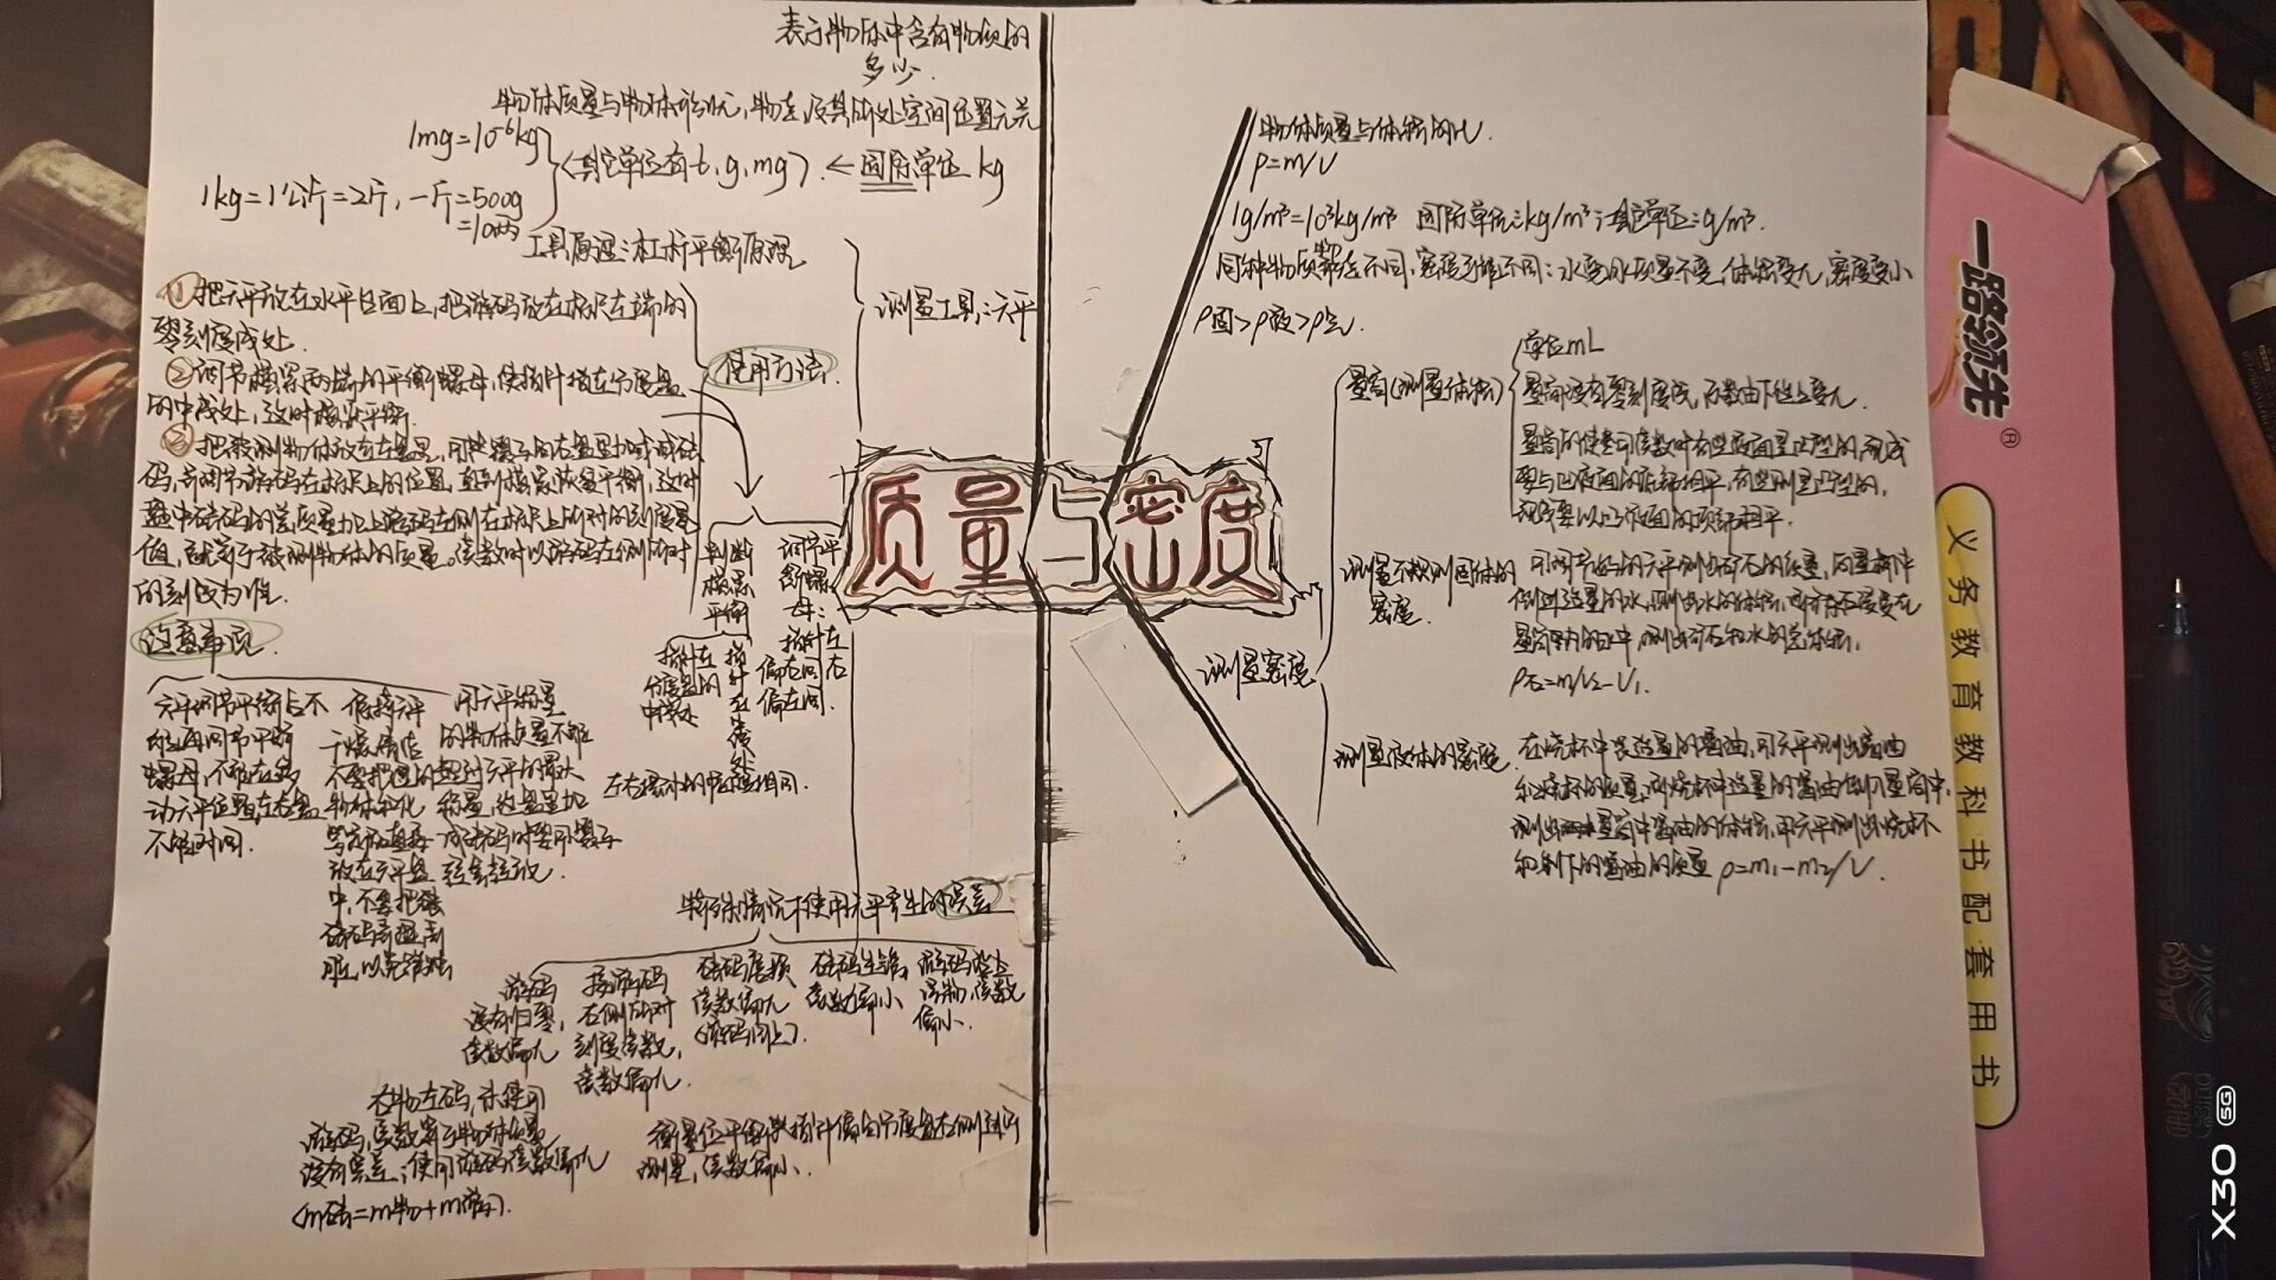 表示物体中含有物质的
多少.
物体质量与物体形状,物态,及其所处空间位置无关
1mg=10⁻⁶kg
(其它单位有t,g,mg).←国际单位 kg
1kg=1公斤=2斤,一斤=500g
=10两
工具原理:杠杆平衡原理
测量工具:天平
使用方法.
①把天平放在水平台面上,把游码放在标尺左端的
零刻度线处.
②调节横梁两端的平衡螺母,使指针指在分度盘
的中线处,这时横梁平衡.
③把被测物体放在左盘里,用镊子向右盘里加或减砝
码,并调节游码在标尺上的位置,直到横梁恢复平衡,这时
盘中砝码的总质量加上游码左侧在标尺上所对的刻度
值,就等于被测物体的质量。读数时以游码左侧所对
的刻线为准.
判断
横梁
平衡
指针在
分度盘的
中线处
指
针
在
左右摆动的幅度相同.
调节平
衡螺
母:
指针左
偏右调右
偏左调.
注意事项.
天平调节平衡后不
能再调节平衡
螺母,不能在移
动天平位置,左右盘
不能对调.
保持天平
干燥清洁
不要把湿的
物体和化
学药品直接
放在天平盘
中,不要把
砝码弄湿弄
脏,以免锈蚀
用天平称量
的物体质量不能
超过天平的最大
称量,这盘里加
减砝码时要用镊子
轻拿轻放.
特殊情况下使用天平产生的误差
游码
没有归零,
读数偏大
按游码
右侧所对
刻度读数,
读数偏大.
砝码磨损
读数偏大
砝码生锈,
读数偏小
游码沾上
污物,读数
偏小.
右物左码,未使用
游码,读数等于物体质量
没有误差;使用游码读数偏大
(m砝=m物+m游).
指针偏向分度盘右侧进行
测量,读数偏小.
质量与密度
物体质量与体积的比.
ρ=m/V
1g/m³=10³kg/m³ 国际单位:kg/m³;其它单位:g/m³.
同种物质物态不同,密度可能不同:水变冰质量不变,体积变大,密度变小
ρ固>ρ液>ρ气.
测量密度
量筒(测量体积)
单位mL
量筒没有零刻度线,示数由下往上变大.
量筒的使用读数时有些液面是凹型的,视线
要与凹液面的底部相平,有些则是凸型的,
视线要以凸液面的顶部相平.
测量不规则固体的
密度.
用调节好的天平测出矿石的质量,向量筒中
倒适量的水,测出水的体积,将矿石浸没在
量筒内的水中,测出矿石和水的总体积,
ρ石=m/V₂-V₁.
测量液体的密度.
在烧杯中装适量的酱油,用天平测出酱油
和烧杯的质量,将烧杯中适量的酱油倒入量筒中,
测出量筒中酱油的体积,用天平测出烧杯
和剩下的酱油的质量 ρ=m₁-m₂/V.
一路领先®
义务教育教科书配套用书
X30 5G